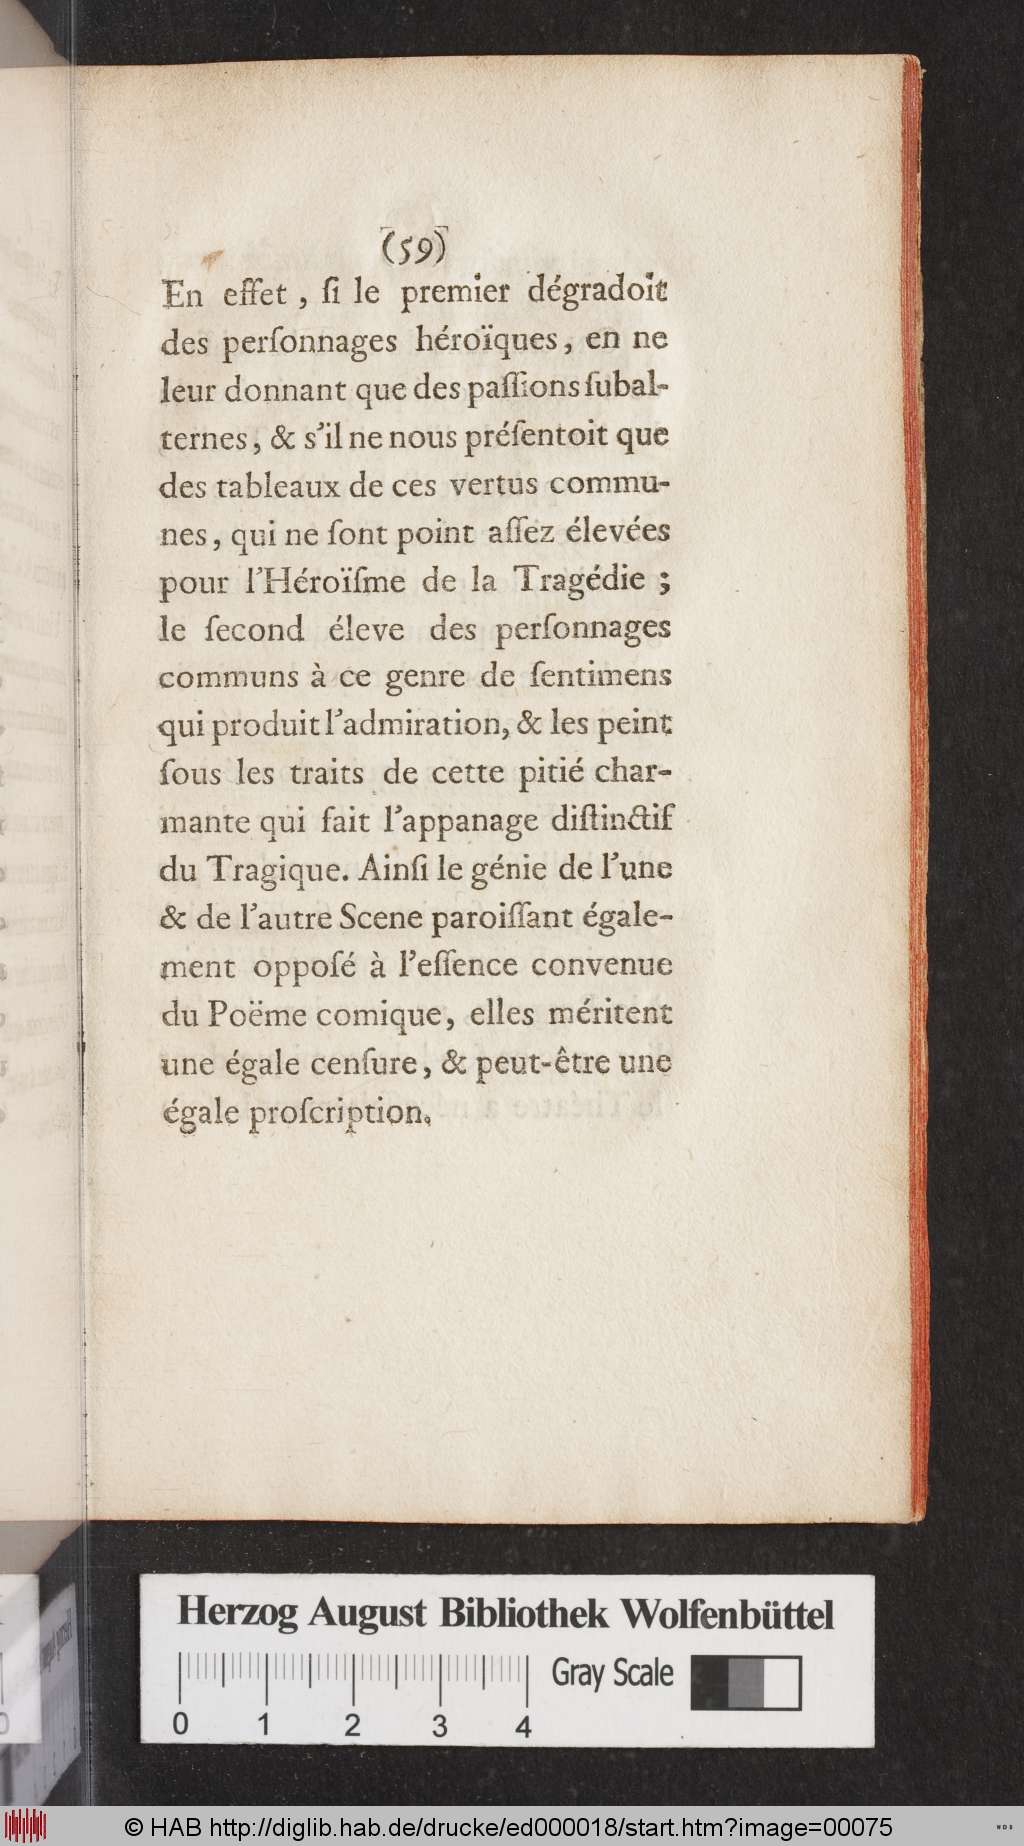 (59)
En effet, ſi le premier dégradoit
des perſonnages héroïques, en ne
leur donnant que des paſſions ſubal-
ternes, & s'il ne nous préſentoit que
des tableaux de ces vertus commu-
nes, qui ne ſont point aſſez élevées
pour l'Héroïſme de la Tragédie ;
le ſecond éleve des perſonnages
communs à ce genre de ſentimens
qui produit l'admiration, & les peint
ſous les traits de cette pitié char-
mante qui fait l'appanage diſtinctif
du Tragique. Ainſi le génie de l'une
& de l'autre Scene paroiſſant égale-
ment oppoſé à l'eſſence convenue
du Poëme comique, elles méritent
une égale cenſure, & peut-être une
égale proſcription.
Herzog August Bibliothek Wolfenbüttel
Gray Scale
0 1 2 3 4
© HAB http://diglib.hab.de/drucke/ed000018/start.htm?image=00075